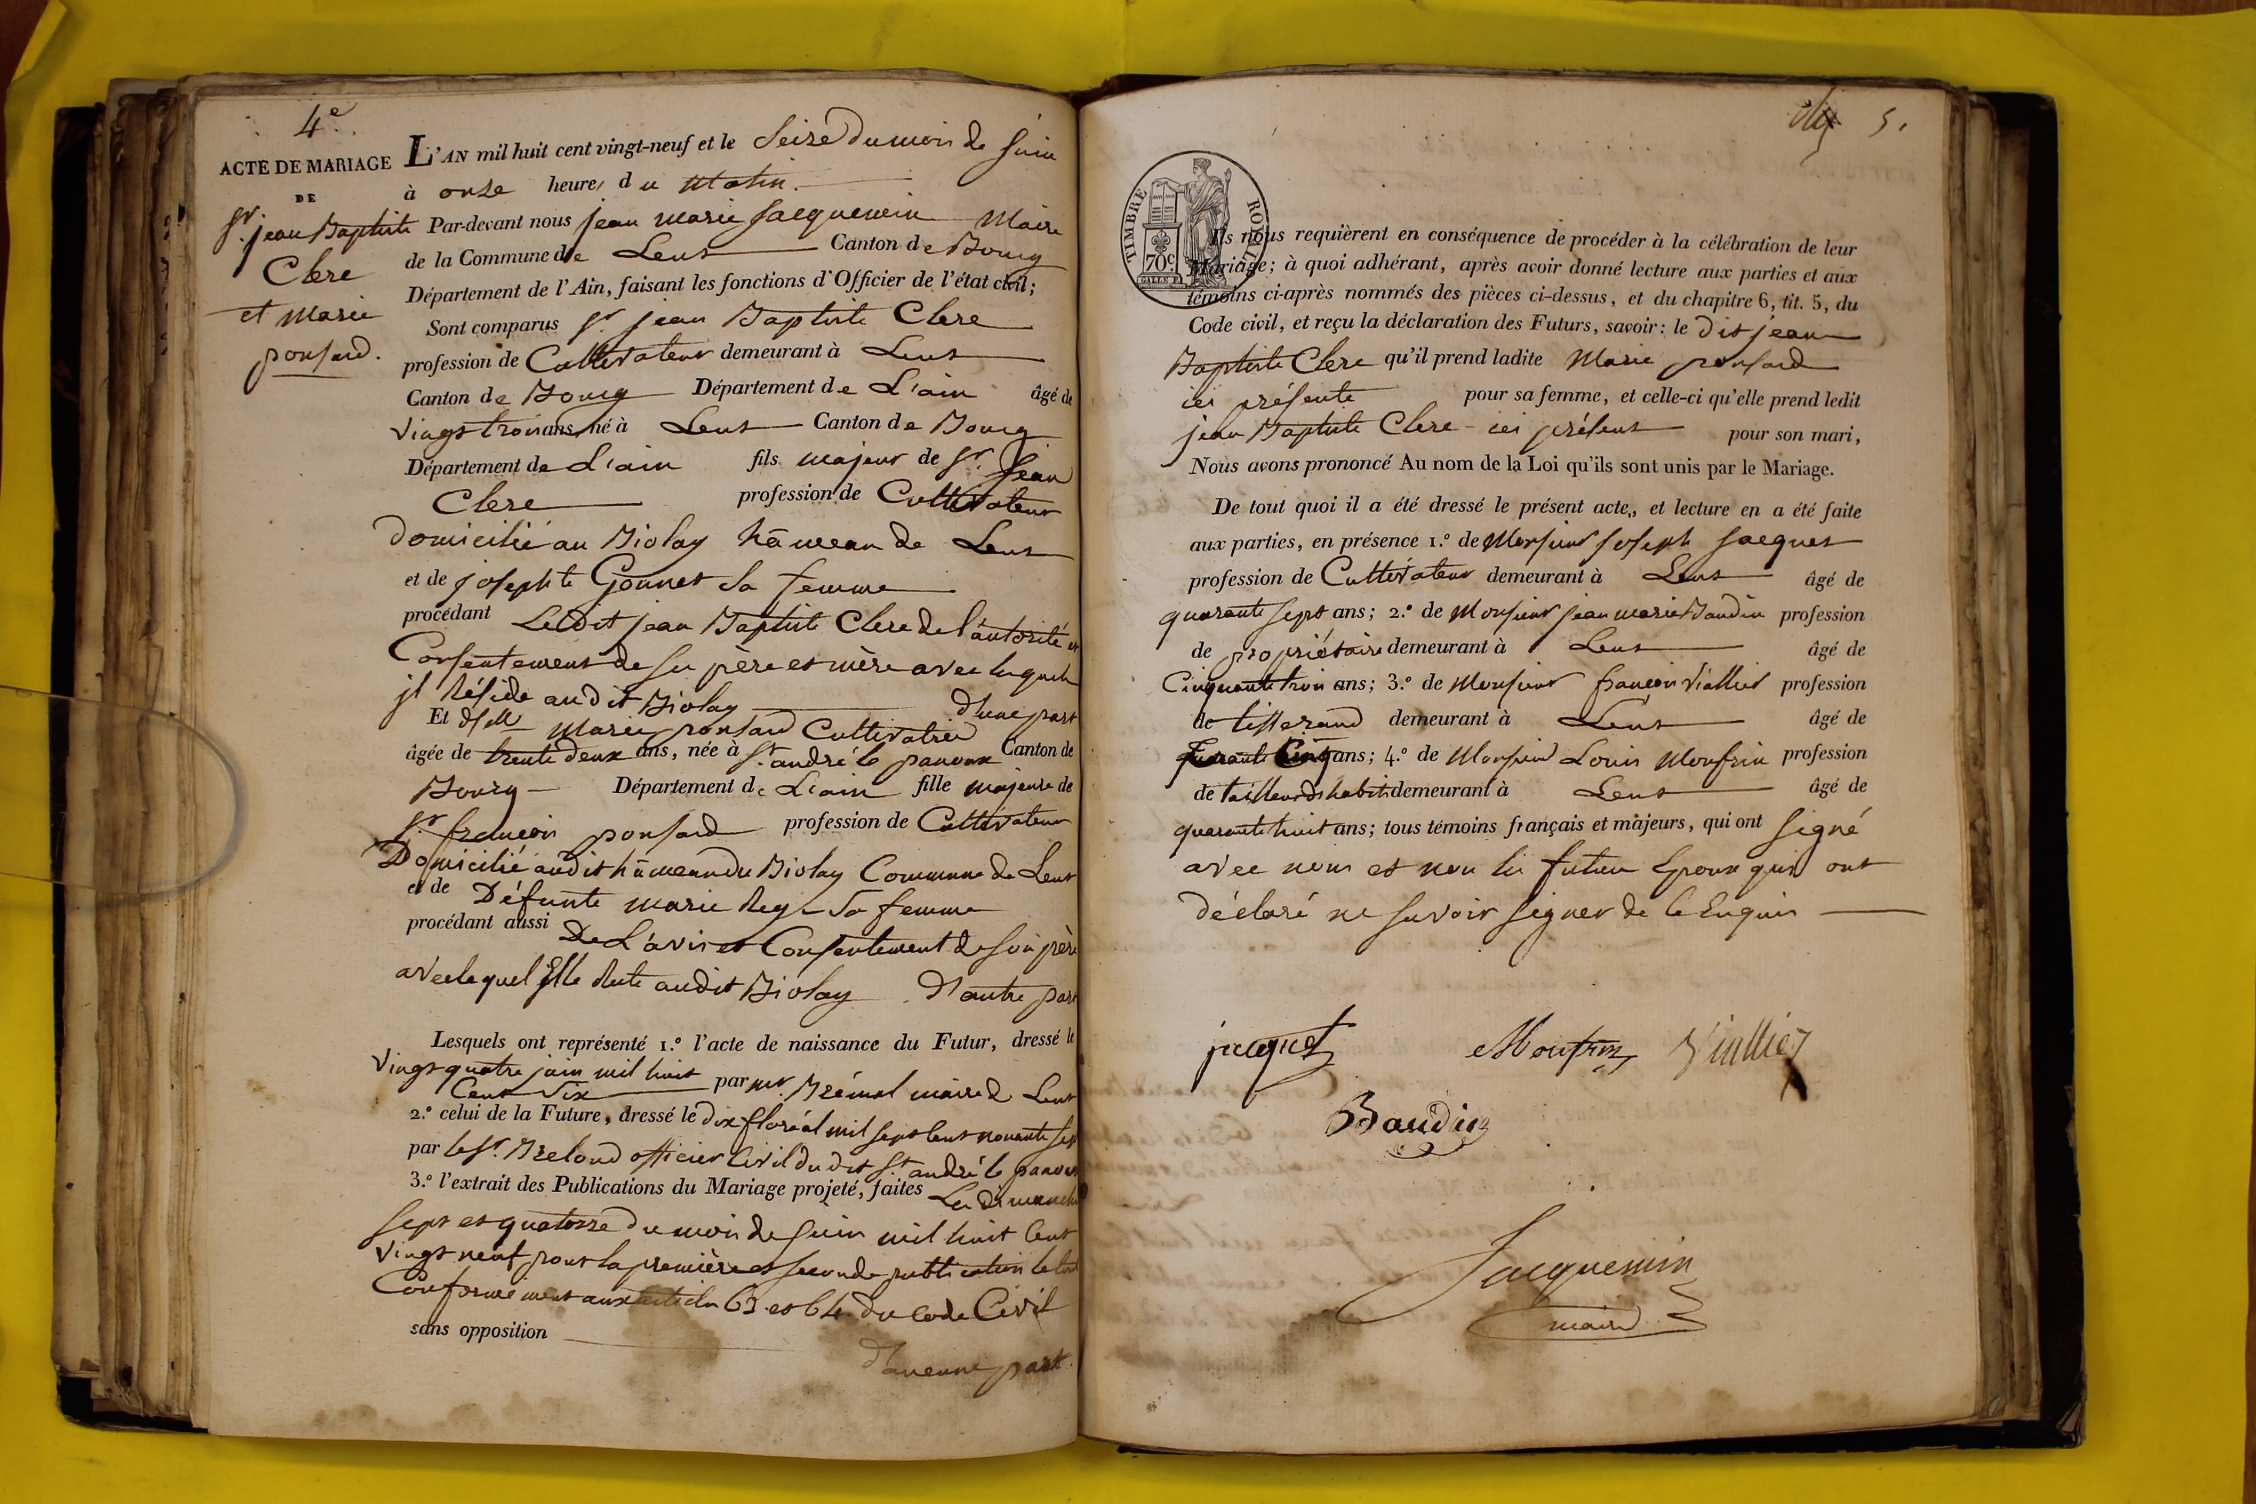 4e
ACTE DE MARIAGE
DE
Sr. jean Baptiste
Clere
et Marie
ponsard.
L'AN mil huit cent vingt-neuf et le Seize du mois de juin
à onze heures du Matin.
Par-devant nous jean marie jacquemin Maire
de la Commune de Lent Canton de Bourg
Département de l'Ain, faisant les fonctions d'Officier de l'état civil;
Sont comparus Sr jean Baptiste Clere
profession de Cultivateur demeurant à Lent
Canton de Bourg Département de L'ain âgé de
vingt trois ans, né à Lent Canton de Bourg
Département de L'ain fils majeur de Sr. jean
Clere profession de Cultivateur
domicilié au Biolay hameau de Lent
et de josephte Gonnet Sa femme
procédant Ledit jean Baptiste Clere de l'autorité et
Consentement de ses père et mère avec lesquels
il Réside audit Biolay d'une part
Et dlle Marie ponsard Cultivatrice
âgée de trente deux ans, née à St. andré le panoux Canton de
Bourg Département de L'ain fille majeure de
Sr. françois ponsard profession de Cultivateur
Domicilié audit hameau du Biolay Commune de Lent
et de Défunte marie Rey Sa femme
procédant aussi De L'avis et Consentement de son père
avec lequel Elle Reste audit Biolay d'autre part
Lesquels ont représenté 1.º l'acte de naissance du Futur, dressé le
vingt quatre juin mil huit
Cent Six par mr. Brémal maire de Lent
2.º celui de la Future, dressé le dix floréal mil sept cent nonante sept
par le Sr. Breloud officier Civil du dit St. andré le panoux
3.º l'extrait des Publications du Mariage projeté, faites Les dimanches
sept et quatorze du mois de juin mil huit Cent
vingt neuf pour la première et seconde publication le tout
Conformément aux articles 63 et 64 du code Civil
sans opposition
d'aucune part.
5.
TIMBRE ROYAL
70c
Ils nous requièrent en conséquence de procéder à la célébration de leur
Mariage; à quoi adhérant, après avoir donné lecture aux parties et aux
témoins ci-après nommés des pièces ci-dessus, et du chapitre 6, tit. 5, du
Code civil, et reçu la déclaration des Futurs, savoir: le dit jean
Baptiste Clere qu'il prend ladite Marie ponsard
ici présente pour sa femme, et celle-ci qu'elle prend ledit
jean Baptiste Clere ici présent pour son mari,
Nous avons prononcé Au nom de la Loi qu'ils sont unis par le Mariage.
De tout quoi il a été dressé le présent acte,, et lecture en a été faite
aux parties, en présence 1.º de Monsieur joseph jacquet
profession de Cultivateur demeurant à Lent âgé de
quarante sept ans; 2.º de Monsieur jean marie Baudin profession
de propriétaire demeurant à Lent âgé de
Cinquante trois ans; 3.º de Monsieur françois Viallier profession
de tisserand demeurant à Lent âgé de
quarante Cinq ans; 4.º de Monsieur Louis Monfrin profession
de tailleur d'habits demeurant à Lent âgé de
quarante huit ans; tous témoins français et majeurs, qui ont signé
avec nous et non les futurs Epoux qui ont
déclaré ne savoir signer de ce Enquis
jacquet
Monfrin
Viallier
Baudin
Jacquemin
maire